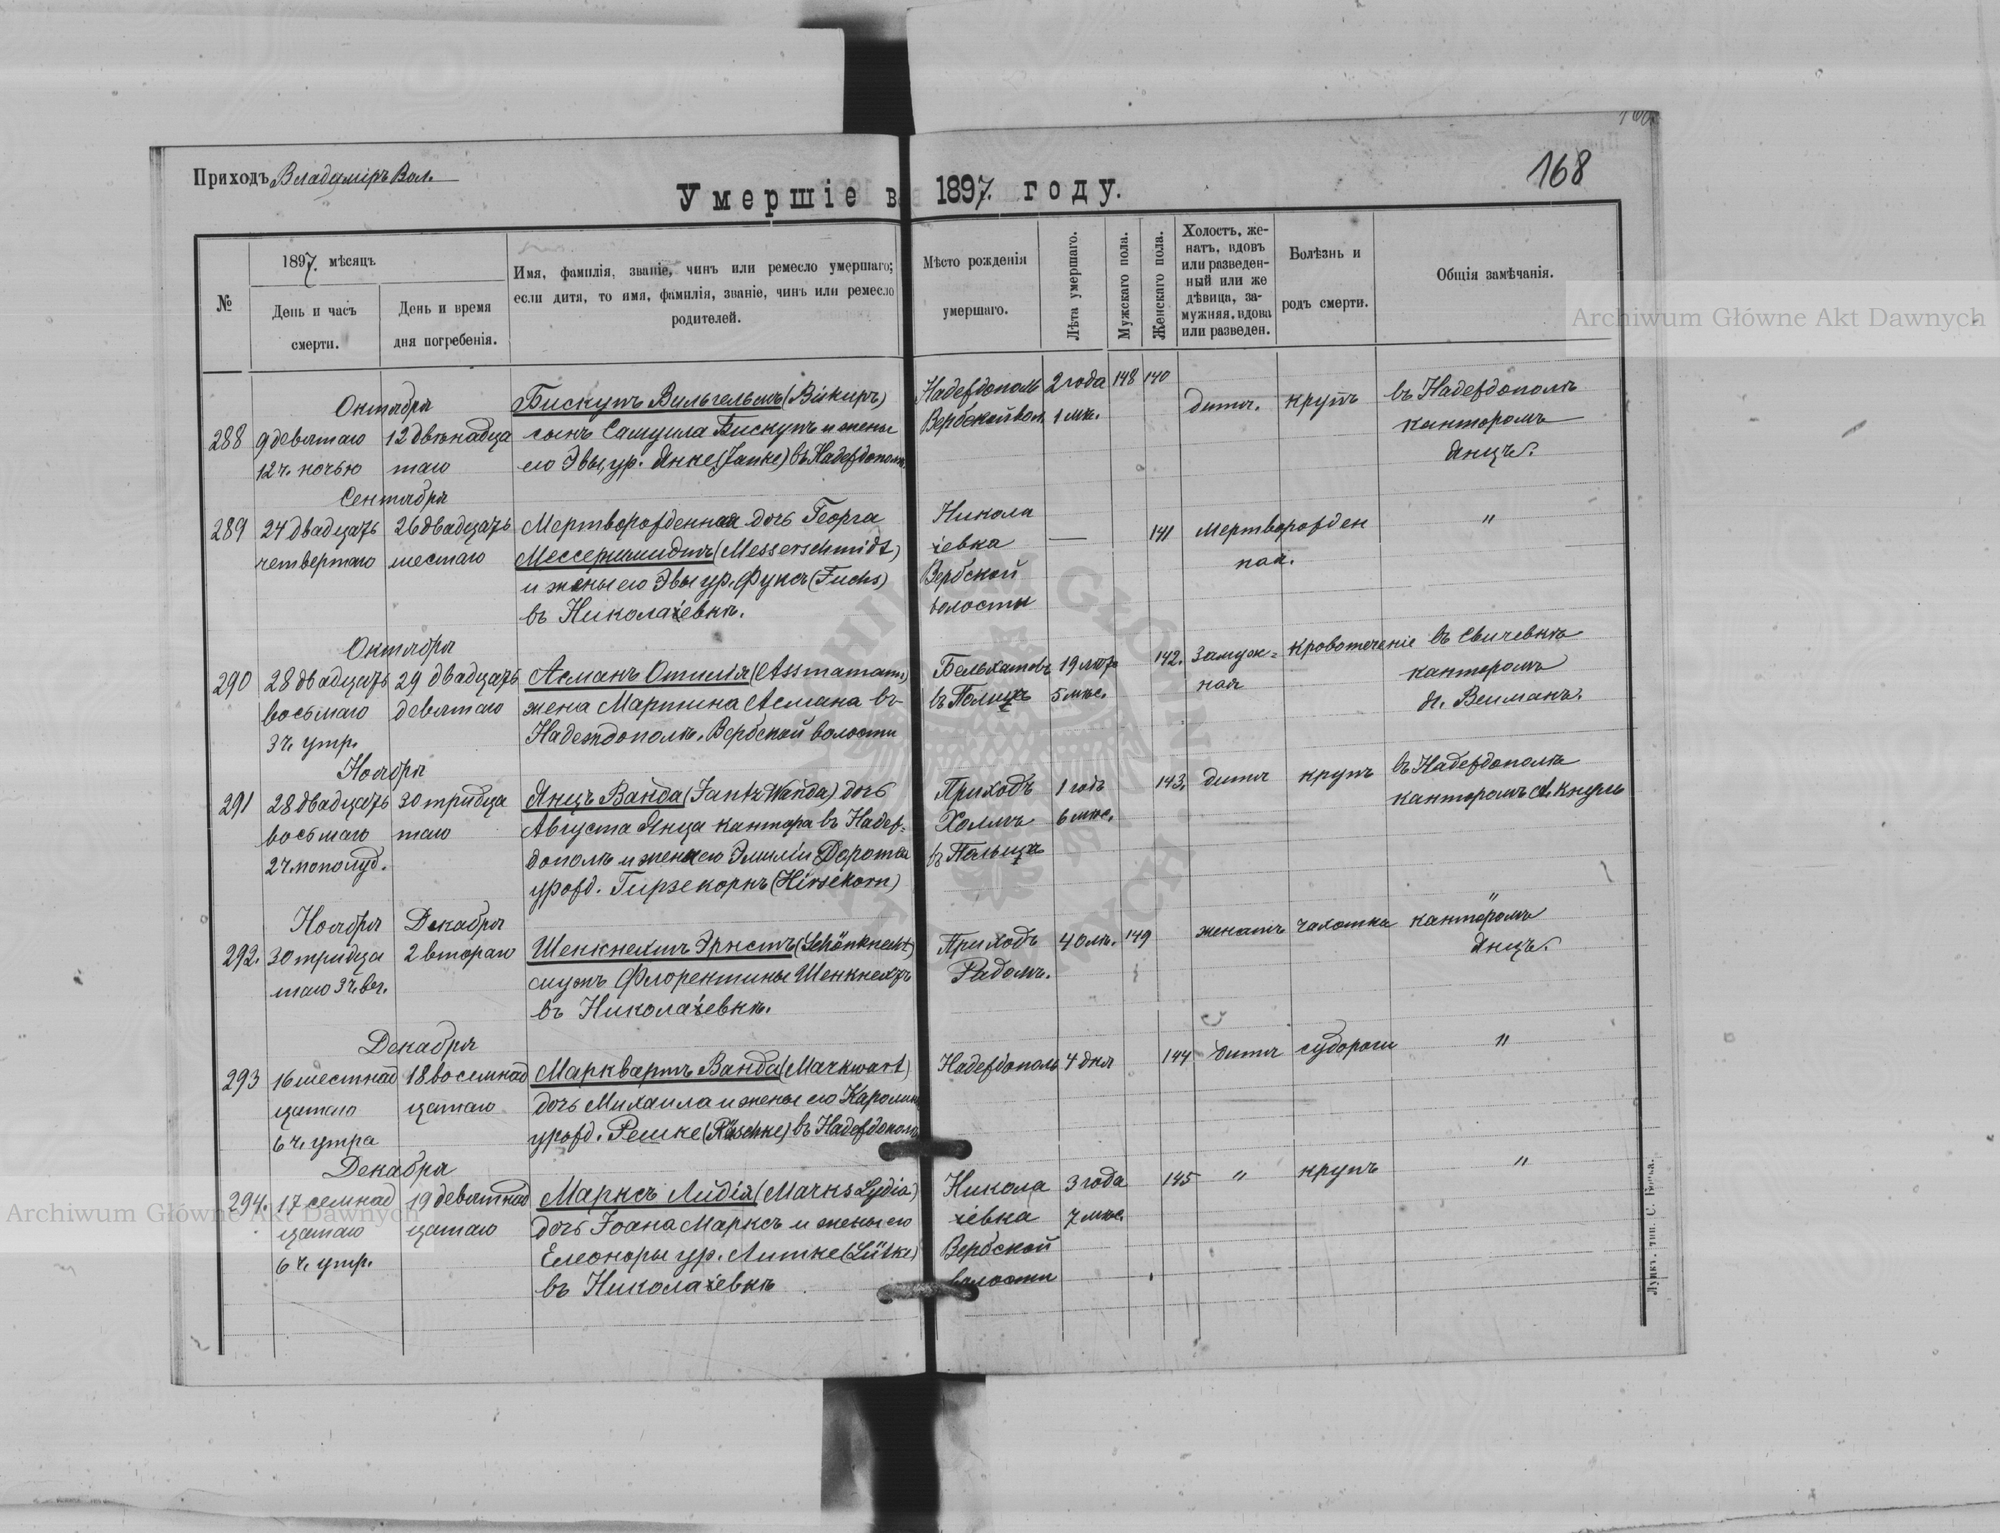 168
Приходъ Владиміръ Вол.
Умершіе въ 1897. году.
№
1897. мѣсяцъ
День и часъ
смерти.
День и время
дня погребенія.
Имя, фамилія, званіе, чинъ или ремесло умершаго;
если дитя, то имя, фамилія, званіе, чинъ или ремесло
родителей.
Мѣсто рожденія
умершаго.
Лѣта умершаго.
Мужскаго пола.
Женскаго пола.
Холостъ, же-
натъ, вдовъ
или разведен-
ный или же
дѣвица, за-
мужняя, вдова
или разведен.
Болѣзнь и
родъ смерти.
Общія замѣчанія.
Archiwum Główne Akt Dawnych
Октября
288
9 девятаго
12 ч. ночью
12 двѣнадца
таго
Бискупъ Вильгельмъ
сынъ Самуила Бискупъ и жены
его Эвы, ур. Янке (Janke) въ Надеждополѣ
Надеждополь
Вербской вол.
2 года
1 мѣ.
148
140
дитя.
крупъ
въ Надеждополѣ
канторомъ
Янцъ.
Сентября
289
24 двадцать
четвертаго
26 двадцать
шестаго
Мертворожденная дочь Георга
Мессершмидтъ (Messerschmidt)
и жены его Эвы ур. Фуксъ (Fuchs)
въ Николаіевкѣ.
Никола
іевка
Вербской
волости
—
141
мертворожден
ная.
"
Октября
290
28 двадцать
восьмаго
3 ч. утр.
29 двадцать
девятаго
Асманъ Отилія (Assmann)
жена Мартина Асмана въ
Надеждополѣ, Вербской волости
Бельхатовъ
въ Польшѣ
19 лѣтъ
5 мѣс.
142.
замуж-
ная
кровотеченіе
въ Свичевкѣ
канторомъ
Веиманъ.
Ноября
291
28 двадцать
восьмаго
2 ч пополуд.
30 тридца
таго
Янцъ Ванда (Jantz Wanda) дочь
Августа Янца кантора въ Надеж-
дополѣ и жены его Эмиліи Доротеи
урожд. Гирзекорнъ (Hirsekorn)
Приходъ
Холмъ
въ Польшѣ
1 годъ
6 мѣс.
143.
дитя
крупъ
въ Надеждополѣ
канторомъ
Ноября
Декабря
292.
30 тридца
таго 3 ч. веч.
2 втораго
Шенкнехтъ Эрнстъ (Schönknecht)
мужъ Флорентины Шенкнехтъ
въ Николаіевкѣ.
Приходъ
Радомъ.
40 лѣ.
149
женатъ
чахотка
"
канторомъ
Янцъ.
Декабря
293
16 шестнад
цатаго
6 ч. утра
18 восемнад
цатаго
Марквартъ Ванда (Markwart)
дочь Михаила и жены его Каролины
урожд. Решке (Räschke) въ Надеждополѣ
Надеждополь
4 дня
144
дитя
судороги
"
Декабря
294.
17 семнад
цатаго
6 ч. утр.
19 девятнад
цатаго
Марксъ Лидія (Marks Lydia)
дочь Іоана Марксъ и жены его
Елеоноры ур. Литке (Lütke)
въ Николаіевкѣ
Никола
іевка
Вербской
волости
3 года
7 мѣс.
145
"
крупъ
"
Archiwum Główne Akt Dawnych
Archiwum Główne Akt Dawnych